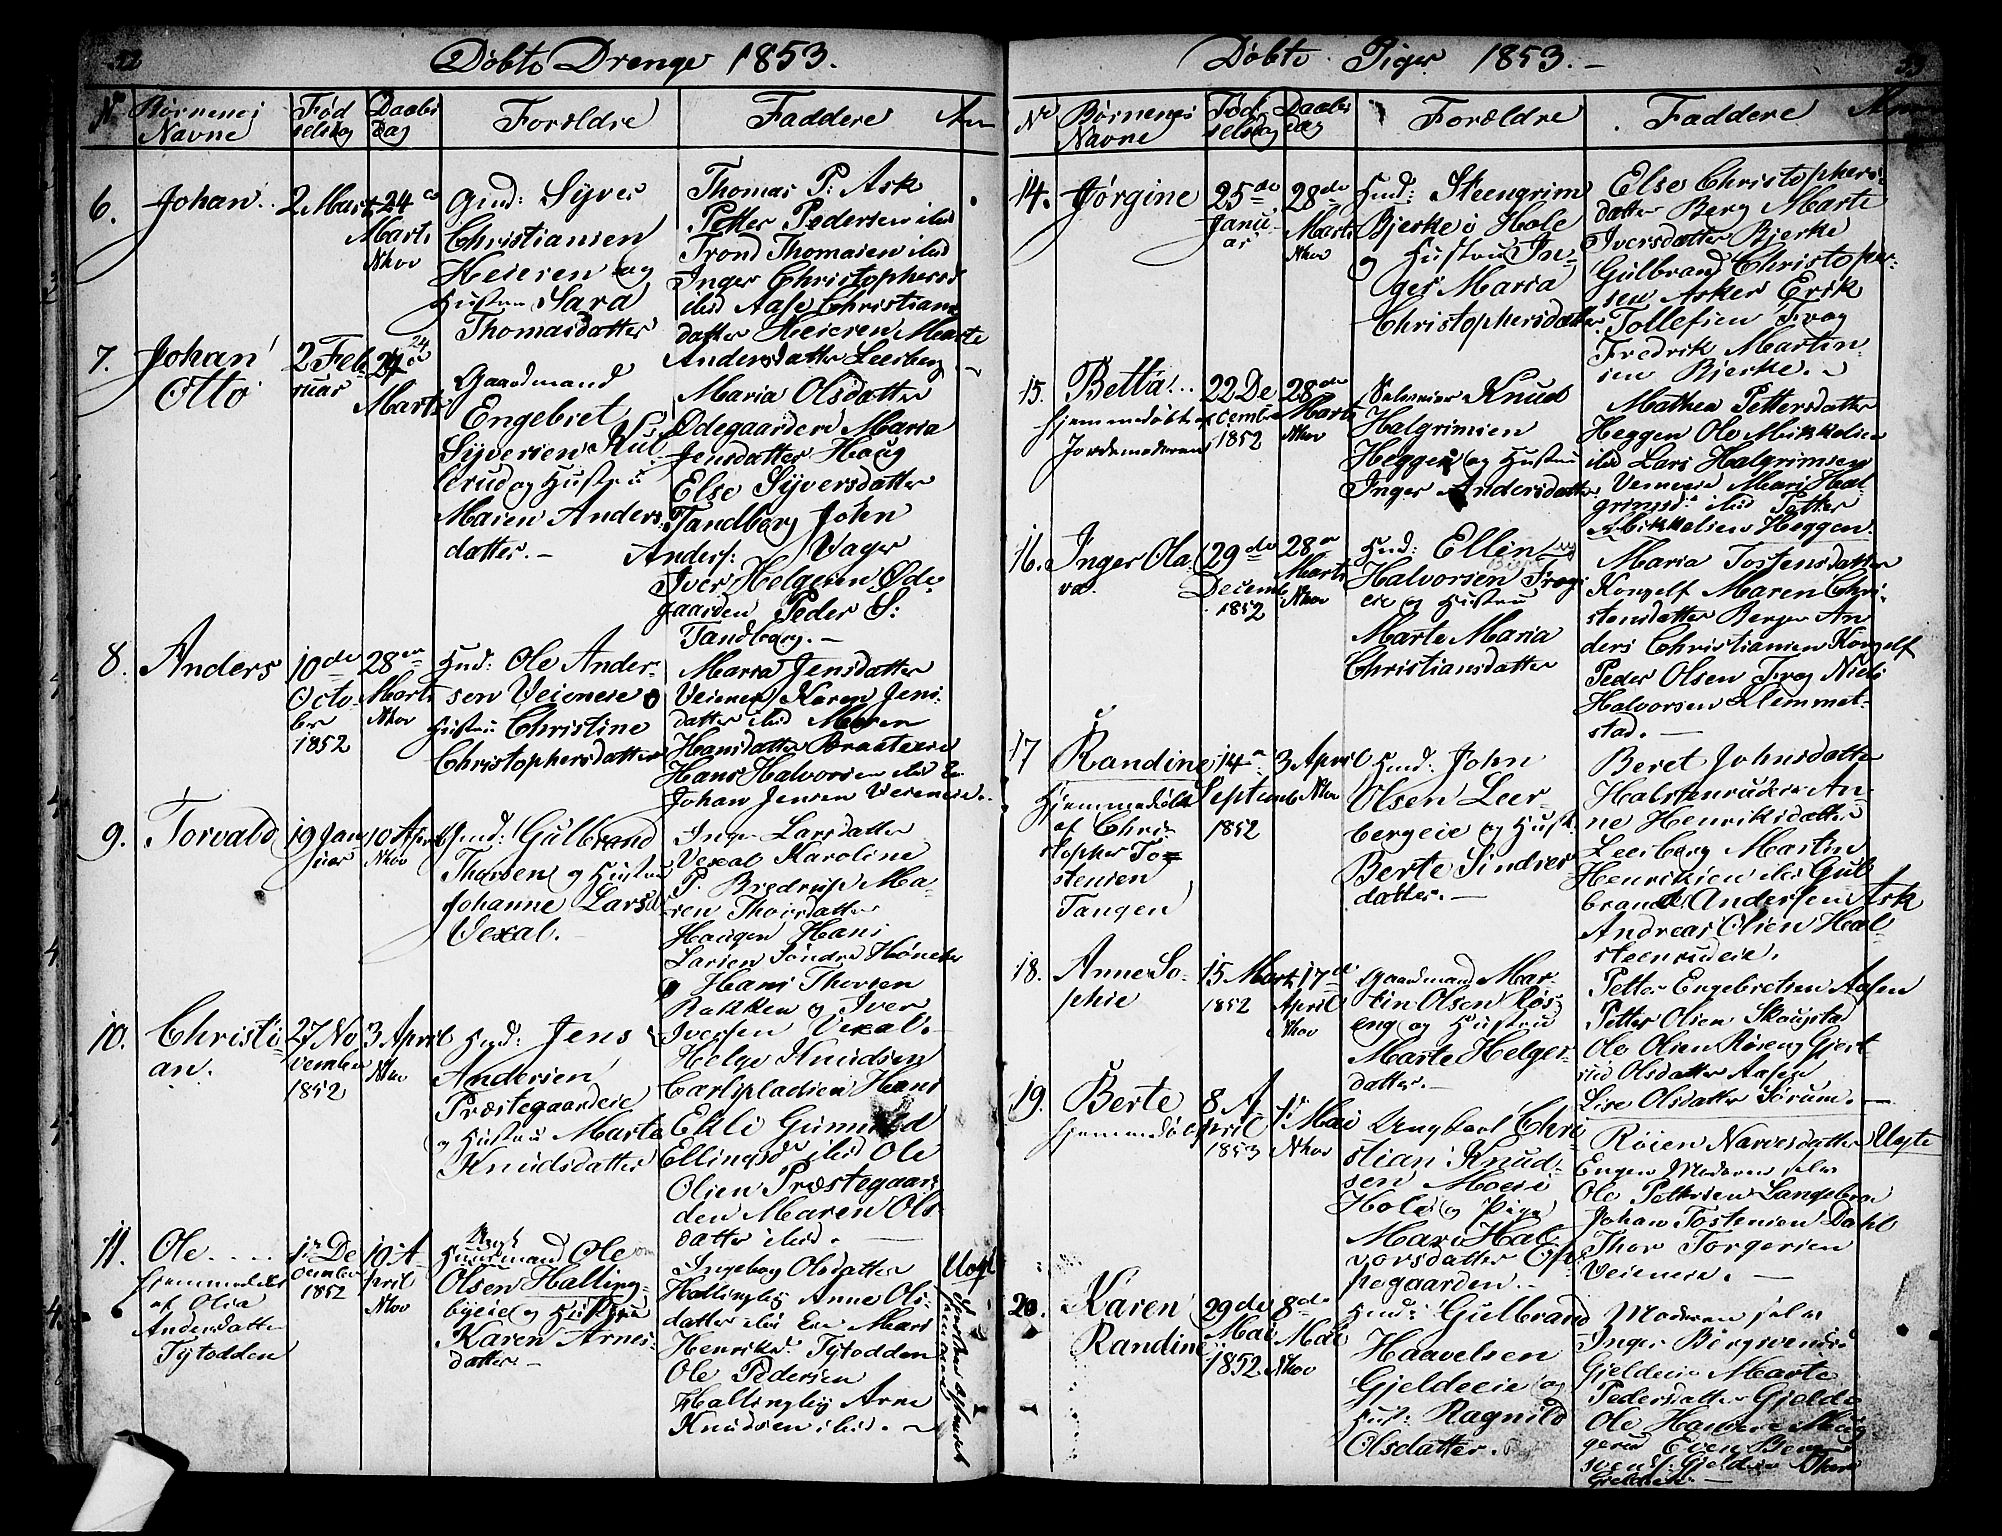 22
Døbte Drenge 1853.
Nr Børnenes Navne
Fødselsdag
Daabs Dag
Forældre
Faddere
6.
Johan
2 Mart
24
Marts
Nhov
Gmd: Syver
Christiansen
Heieren og
Hustru Sara
Thomasdatter
Thomas P: Ask
Petter Pedersen ibid
Trond Thomasen ibid
Inger Christophersd
ibid Aase Christians
datter Heieren Marte
Andersdatter Leerberg
7.
Johan
Otto
2 Feb
ruar
24
Marts
Gaardmand
Engebret
Syversen
erud og Hustru
Maren Anders
datter.
Maria Olsdatter
Ødegaarden Maria
Jensdatter Haug
Else Syversdatter
Tandberg John
Anders: Vager
Iver Helgesen Øde
gaarden Peder S:
Tandberg.
8.
Anders
10de
Octo
ber
1852
28
Marts
Nhov
Hmd: Ole Ander-
sen Veieneie o
Hustru Christine
Christophersdatter
Maria Jensdatter
Veieneie Karen Jens
datter ibid Maren
Hansdatter Braateneie
Hans Halvorsen ibid
Johan Jensen Veieneie.
9.
Torvald
19 Jan
uar
10 April
Nhov
Hmd: Gulbrand
Thorsen og Hustru
Johanne Larsd
Vexal.
Inger Larsdatter
Vexal Karoline
P: Bredrup Ma-
ren Thorsdatter
Haugen Hans
Larsen Søndre Hønen
Hans Thorsen
Rakken og Iver
Iversen Vexal.
10.
Christi
an.
27 No
vember
1852
3 April
Nhov
Hmd: Jens
Andersen
Præstegaardeie
og Hustru Marte
Knudsdatter
Helge Knudsen
Carlspladsen Hans
Ekli Gunnild
Ellingsd ibid Ole
Olsen Præstegaar
den Maren Ols
datter ibid.
11.
Ole
hjemmedøbt
af Olia
Andersdatter
Tytodden
1 De
cember
1852
10 A
pril
Nhov
Huusmand Ole
Olsen Halling-
byeie og Hustru
Karen Arnes-
datter
Ingeborg Olsdatter
Hallingby Anne Ols-
datter ibid Mari
Henriksd: Tytodden
Ole Pedersen
Hallingby Arne
Knudsen ibid.
Døbte Piger 1853.
23
Nr Børnenes Navne
Fødselsdag
Daabs Dag
Forældre
Faddere
14.
Jørgine
25de
Janu-
ar
28de
Marts
Nhov
Hmd: Steengrim
Bjerke i Hole
og Hustru In-
ger Maria
Christophersdatter
Else Christophers-
datter Berg Marte
Iversdatter Bjerke
Gulbrand Christopher-
sen Asker Erik
Tollefsen Frog
Fredrik Martin-
sen Bjerke.
15.
Betta
hjemmedøbt af
Jordemoderen
22 De
cember
1852
28de
Marts
Nhov
Selveier Knud
Halgrimsen
Heggen og Hustru
Inger Andersdatter
Mathea Pettersdatter
Heggen Ole Mikkelsen
ibid Lars Halgrimsen
Mari Hal
grimsd: ibid Petter
Mikkelsen Heggen.
16.
Inger Ola
va.
29de
Decemb
1852
28
Marts
Nhov
Hmd: Ellin
Halvorsen Frog
eie og Hustru
Marte Maria
Christiansdatter
Maria Tostensdatter
Korgelf Maren Chri-
stensdatter Berger An
ders Christiansen Korgelf
Peder Olsen Frog Niels
Halvorsen Klemmet-
stad.
17
Randine
Hjemmedøbt
af Chri-
stopher To
stensen
Tangen
14
Septemb
1852
3 April
Nhov
Hmd: John
Olsen Leer-
bergeie og Hust.
Berte Sindrer
datter.
Beret Johnsdatter
Halstenrudeie An-
ne Henriksdatter
Leerberg Martin
Henriksen ibid Gul
brand Andersen Ask
Andreas Olsen Hal
steenrudeie.
18.
Anne So-
phie
15 Mart
1852
17de
April
Nhov
Gaardmand Mar-
tin Olsen Røs
eng og Hustru
Marte Helger-
datter.
Petter Engebretsen Aasen
Petter Olsen Skougstad
Ole Olsen Røseng Gjert-
rud Olsdatter Aasen
Lise Olsdatter Sørum.
19.
Berte
hjemmedøbt
8 A
pril
1853
1 Mai
Nhov
Ungkarl Chri-
stian Knud-
sen Moeie
Hole og Pige
Mari Hal
vorsdatter Op
pegaarden.
Røien Narvesdatter
Engen Moderen selv
Ole Pettersen Langebroe
Johan Tostensen Dahl
Thor Torgersen
Veieneie.
Uægte
20.
Karen
Randine
29de
Mai
1852
8de
Mai
Nhov
Hmd: Gulbrand
Haavelsen
Gjeldeeie og
Hust: Ragnild
Olsdatter.
Moderen selv
Inger Bergsvensd
Gjeldeeie Marte
Pedersdatter Gjelde
Ole Hansen Haug
gerud Even Berg-
svens: Gjeldeeie